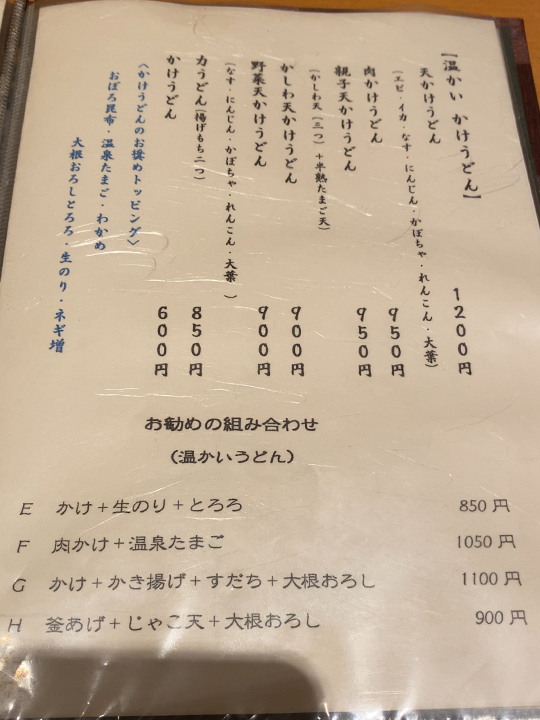 【温かい かけうどん】
天かけうどん 1200円
(エビ・イカ・なす・にんじん・かぼちゃ・れんこん・大葉)
肉かけうどん 950円
親子天かけうどん 950円
(かしわ天(三つ)+半熟たまご天)
かしわ天かけうどん 900円
野菜天かけうどん 900円
(なす・にんじん・かぼちゃ・れんこん・大葉)
力うどん(揚げもち二つ) 850円
かけうどん 600円
〈かけうどんのお奨めトッピング〉
おぼろ昆布・温泉たまご・わかめ
大根おろしとろろ・生のり・ネギ増
お勧めの組み合わせ
(温かいうどん)
E かけ+生のり+とろろ 850円
F 肉かけ+温泉たまご 1050円
G かけ+かき揚げ+すだち+大根おろし 1100円
H 釜あげ+じゃこ天+大根おろし 900円